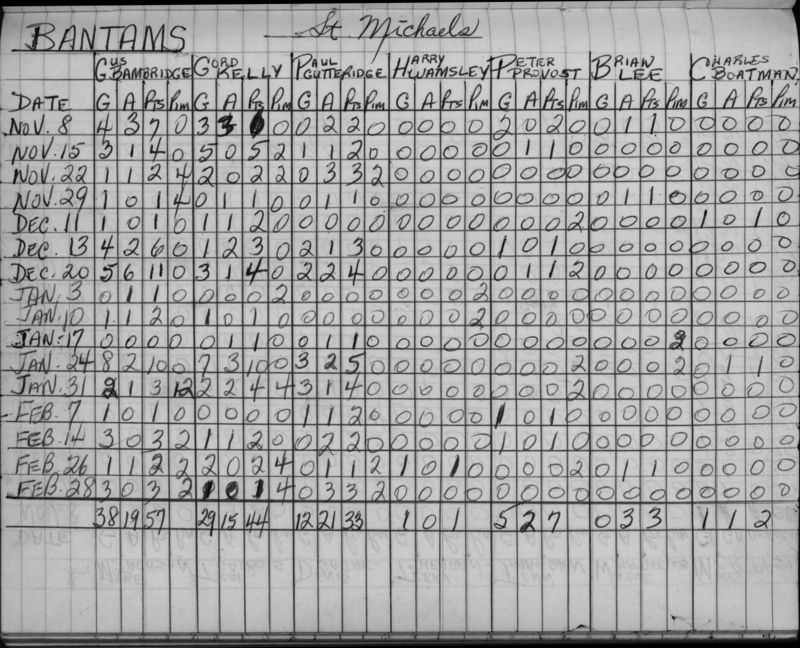 BANTAMS St. Michaels
GUS BAMBRIDGE GORD KELLY PAUL GUTTERIDGE HARRY WAMSLEY PETER PROVOST BRIAN LEE CHARLES BOATMAN
DATE G A Pts Pim G A Pts Pim G A Pts Pim G A Pts Pim G A Pts Pim G A Pts Pim G A Pts Pim
NOV. 8 4 3 7 0 3 3 6 0 0 2 2 0 0 0 0 0 2 0 2 0 0 1 1 0 0 0 0 0
NOV. 15 3 1 4 0 5 0 5 2 1 1 2 0 0 0 0 0 0 1 1 0 0 0 0 0 0 0 0 0
NOV. 22 1 1 2 4 2 0 2 2 0 3 3 2 0 0 0 0 0 0 0 0 0 0 0 0 0 0 0 0
NOV. 29 1 0 1 4 0 1 1 0 0 1 1 0 0 0 0 0 0 0 0 0 0 1 1 0 0 0 0 0
DEC. 11 1 0 1 0 1 1 2 0 0 0 0 0 0 0 0 0 0 0 0 2 0 0 0 0 1 0 1 0
DEC. 13 4 2 6 0 1 2 3 0 2 1 3 0 0 0 0 0 1 0 1 0 0 0 0 0 0 0 0 0
DEC. 20 5 6 11 0 3 1 4 0 2 2 4 0 0 0 0 0 0 1 1 2 0 0 0 0 0 0 0 0
JAN. 3 0 1 1 0 0 0 0 2 0 0 0 0 0 0 0 2 0 0 0 0 0 0 0 0 0 0 0 0
JAN. 10 1 1 2 0 1 0 1 0 0 0 0 0 0 0 0 2 0 0 0 0 0 0 0 0 0 0 0 0
JAN. 17 0 0 0 0 0 1 1 0 0 1 1 0 0 0 0 0 0 0 0 0 0 0 0 2 0 0 0 0
JAN. 24 8 2 10 0 7 3 10 0 3 2 5 0 0 0 0 0 0 0 0 2 0 0 0 2 0 1 1 0
JAN. 31 2 1 3 12 2 2 4 4 3 1 4 0 0 0 0 0 0 0 0 2 0 0 0 0 0 0 0 0
FEB. 7 1 0 1 0 0 0 0 0 1 1 2 0 0 0 0 0 1 0 1 0 0 0 0 0 0 0 0 0
FEB. 14 3 0 3 2 1 1 2 0 0 2 2 0 0 0 0 0 1 0 1 0 0 0 0 0 0 0 0 0
FEB. 26 1 1 2 2 2 0 2 4 0 1 1 2 1 0 1 0 0 0 0 2 0 1 1 0 0 0 0 0
FEB. 28 3 0 3 2 1 0 1 4 0 3 3 2 0 0 0 0 0 0 0 0 0 0 0 0 0 0 0 0
38 19 57 29 15 44 12 21 33 1 0 1 5 2 7 0 3 3 1 1 2